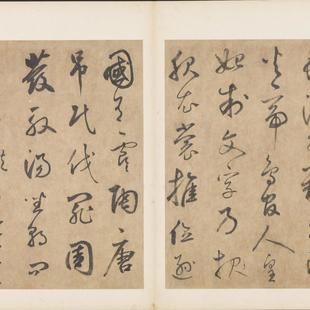 火帝鳥官人皇
始制文字乃服
衣裳推位
國有虞陶唐
弔民伐罪周
發殷湯坐朝問